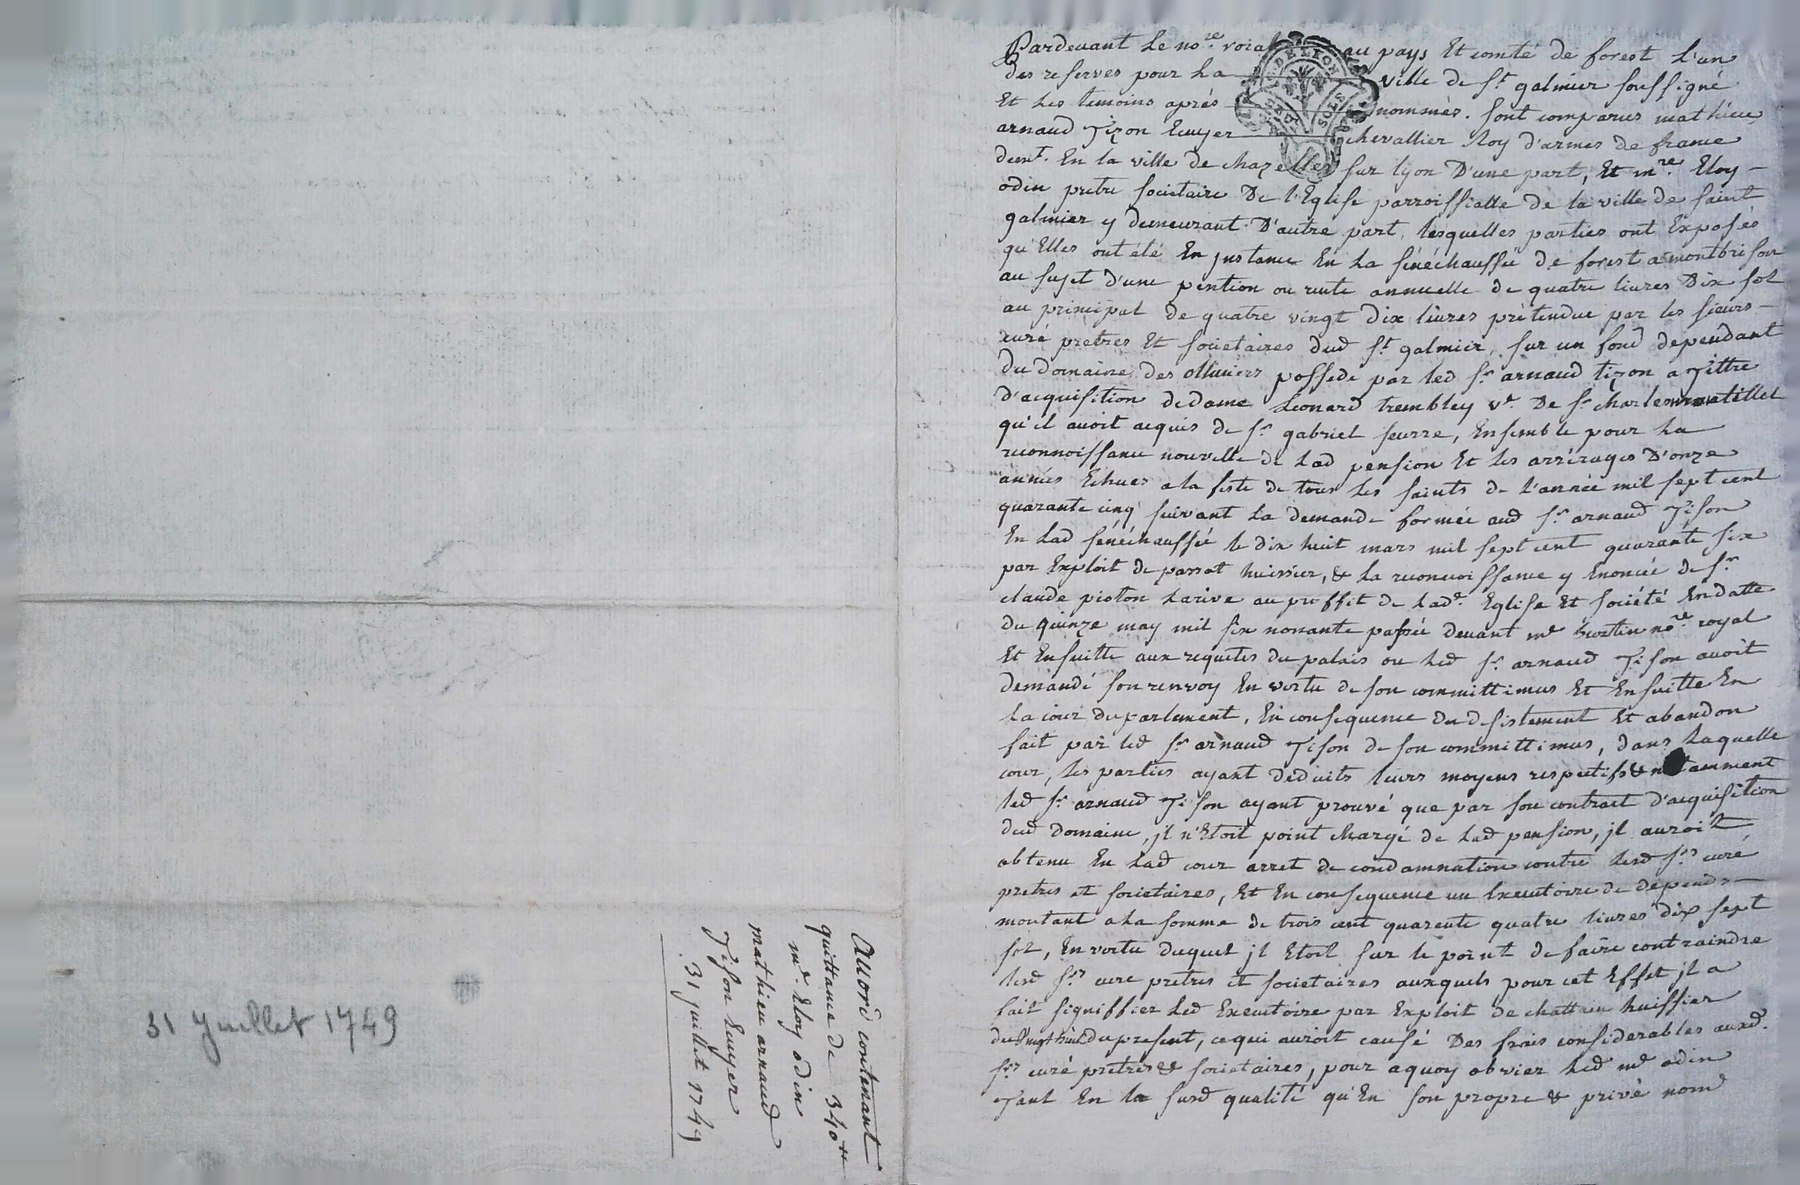 31 Juillet 1749
Accord contenant
quittance de 340 tt
mre Eloy odin
mathieu arnaud
Tison Ecuyer
31 juillet 1749
Pardevant Le nore roial au pays Et comté de forest L'un
des reservés pour La ville de st galmier soussigné
Et Les temoins aprés nommés. sont comparus mathieu
arnaud Tizon Ecuyer chevallier Roy d'armes de france
demt. En la ville de chazelles sur lyon D'une part, Et mre. Eloy
odin pretre societaire De l'Eglise parroissialle de la ville de saint
galmier y demeurant D'autre part, lesquelles parties ont Exposés
qu'Elles ont été En jnstance En La sénéchaussée de forest a montbrison
au sujet d'une pention ou rente annuelle de quatre livres Dix sol
au principal de quatre vingt dix livres prétendue par les sieurs
curé pretres Et societaires dud st galmier, sur un fond dependant
du domaine des olliviers possedé par led sr arnaud tizon a Tittre
d'acquisition de dame Leonard trembley ve. De sr charles
qu'il avoit acquis de sr gabriel seurre, Ensemble pour La
reconnoissance nouvelle de Lad pension Et les arrérages D'onze
années Echues a la feste de tous Les saints de l'année mil sept cent
quarante cinq suivant La demande formée aud sr arnaud Tison
En Lad sénéchaussée le dix huit mars mil sept cent quarante six
par Exploit de passot huissier, & La reconnoissance y Enoncée de sr
claude pioton Larive au proffit de Lade. Eglise Et société En datte
du quinze may mil six nonante passée devant me nore royal
Et Ensuitte aux requetes du palais ou Led sr arnaud Tison avoit
demandé son renvoy En vertu de son committimus Et Ensuitte En
La cour du parlement, En consequence du desistement Et abandon
fait par led sr arnaud Tison de son committimus, dans Laquelle
cour, Les parties ayant deduits leurs moyens respectifs & notamment
led sr arnaud Tison ayant prouvé que par son contract d'acquisition
dud domaine, jl n'Etoit point chargé de Lad pension, jl auroit
obtenu En Lad cour arret de condamnation contre Lesd srs curé
pretres et societaires, Et En consequence un Executoire de depends
montant a La somme de trois cent quarente quatre livres dix sept
sol, En vertu duquel jl Etoit sur le point de faire contraindre
Lesd srs curé pretres et societaires auxquels pour cet Effet jl a
fait signiffier Led Executoire par Exploit de chattein huissier
du vingt huit du present, ce qui auroit causé Des frais considerables auxd.
srs curé pretres & societaires, pour a quoy obvier Led me odin
Tant En la susd qualité qu'En son propre & privé nom